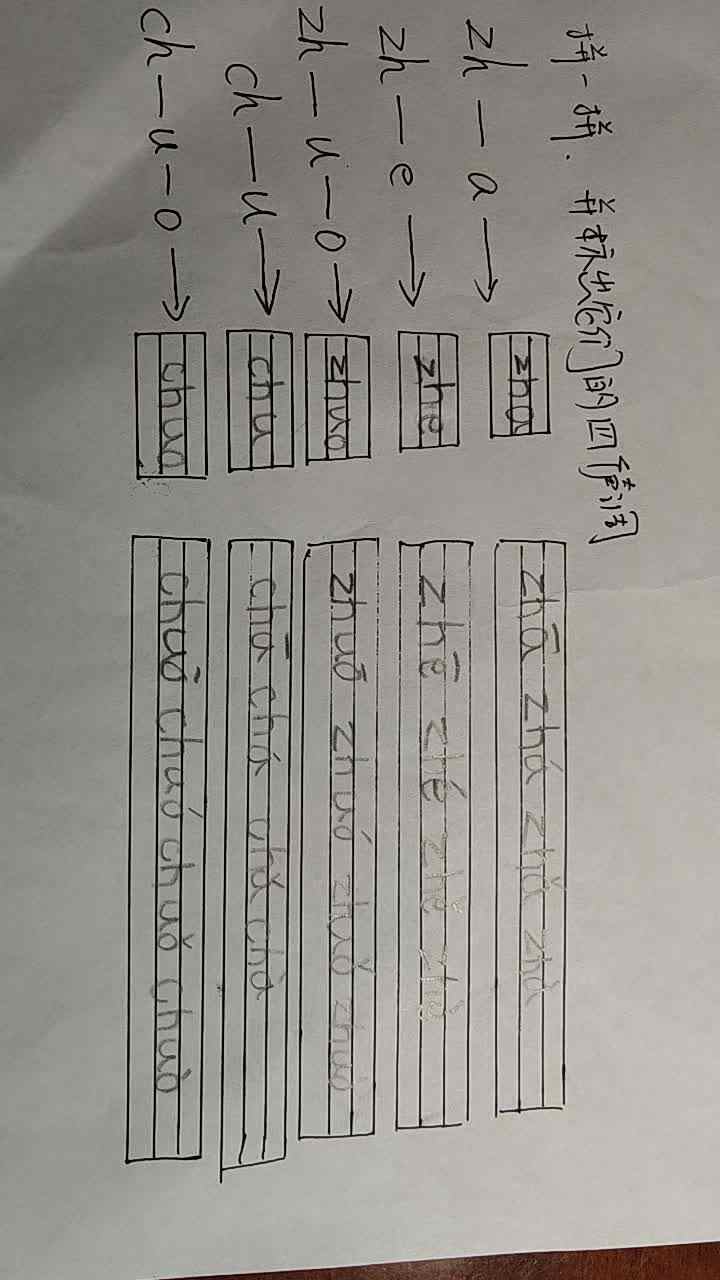 拼一拼.并标出它们的四声调
zh — a → zha zhā zhá zhǎ zhà
zh — e → zhe zhē zhé zhě zhè
zh — u — o → zhuo zhuō zhuó zhuǒ zhuò
ch — u → chu chā chá chǎ chà
ch — u — o → chuo chuō chuó chuǒ chuò